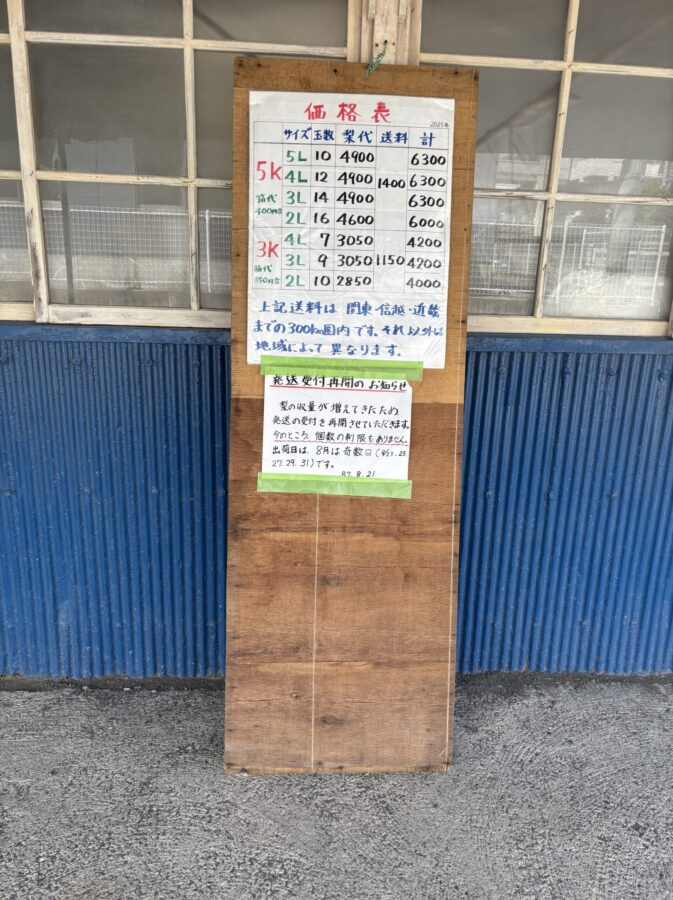 価格表
2025年
サイズ 玉数 梨代 送料 計
5K 箱代400円含
5L 10 4900 6300
4L 12 4900 1400 6300
3L 14 4900 6300
2L 16 4600 6000
3K 箱代350円含
4L 7 3050 4200
3L 9 3050 1150 4200
2L 10 2850 4000
上記送料は 関東・信越・近畿
までの300km圏内です。それ以外は
地域によって異なります。
発送受付再開のお知らせ
梨の収量が増えてきたため
発送の受付を再開させていただきます。
今のところ、個数の制限もありません。
出荷日は、8月は奇数日(
27.29.31)です。
8.21